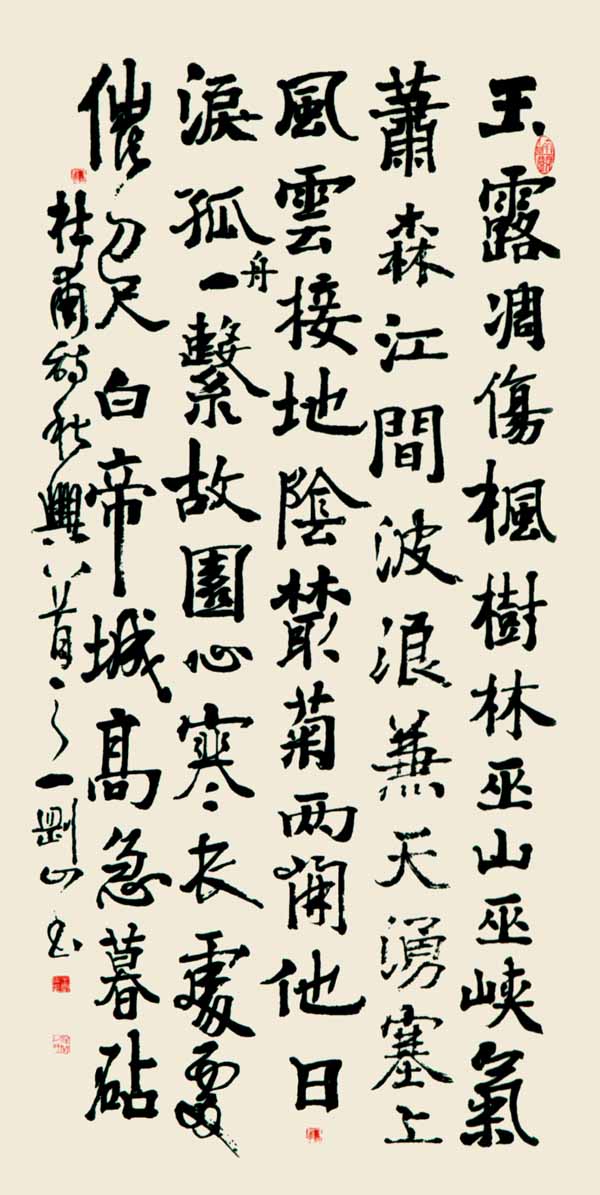 玉露凋傷楓樹林巫山巫峽氣
蕭森江間波浪兼天湧塞上
風雲接地陰叢菊两開他日
淚孤舟一繫故園心寒衣處處
催刀尺白帝城高急暮砧
杜甫詩秋興八首之一剛山书